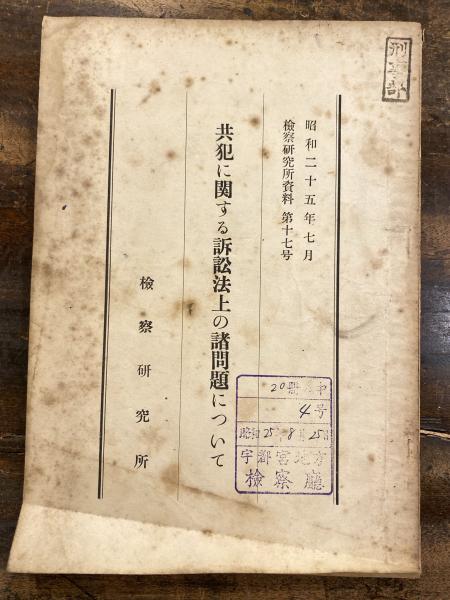 刑事部
昭和二十五年七月
檢察研究所資料 第十七号
共犯に関する訴訟法上の諸問題について
檢察研究所
20冊ノ中
4号
昭和25年8月25日
宇都宮地方
檢察廳